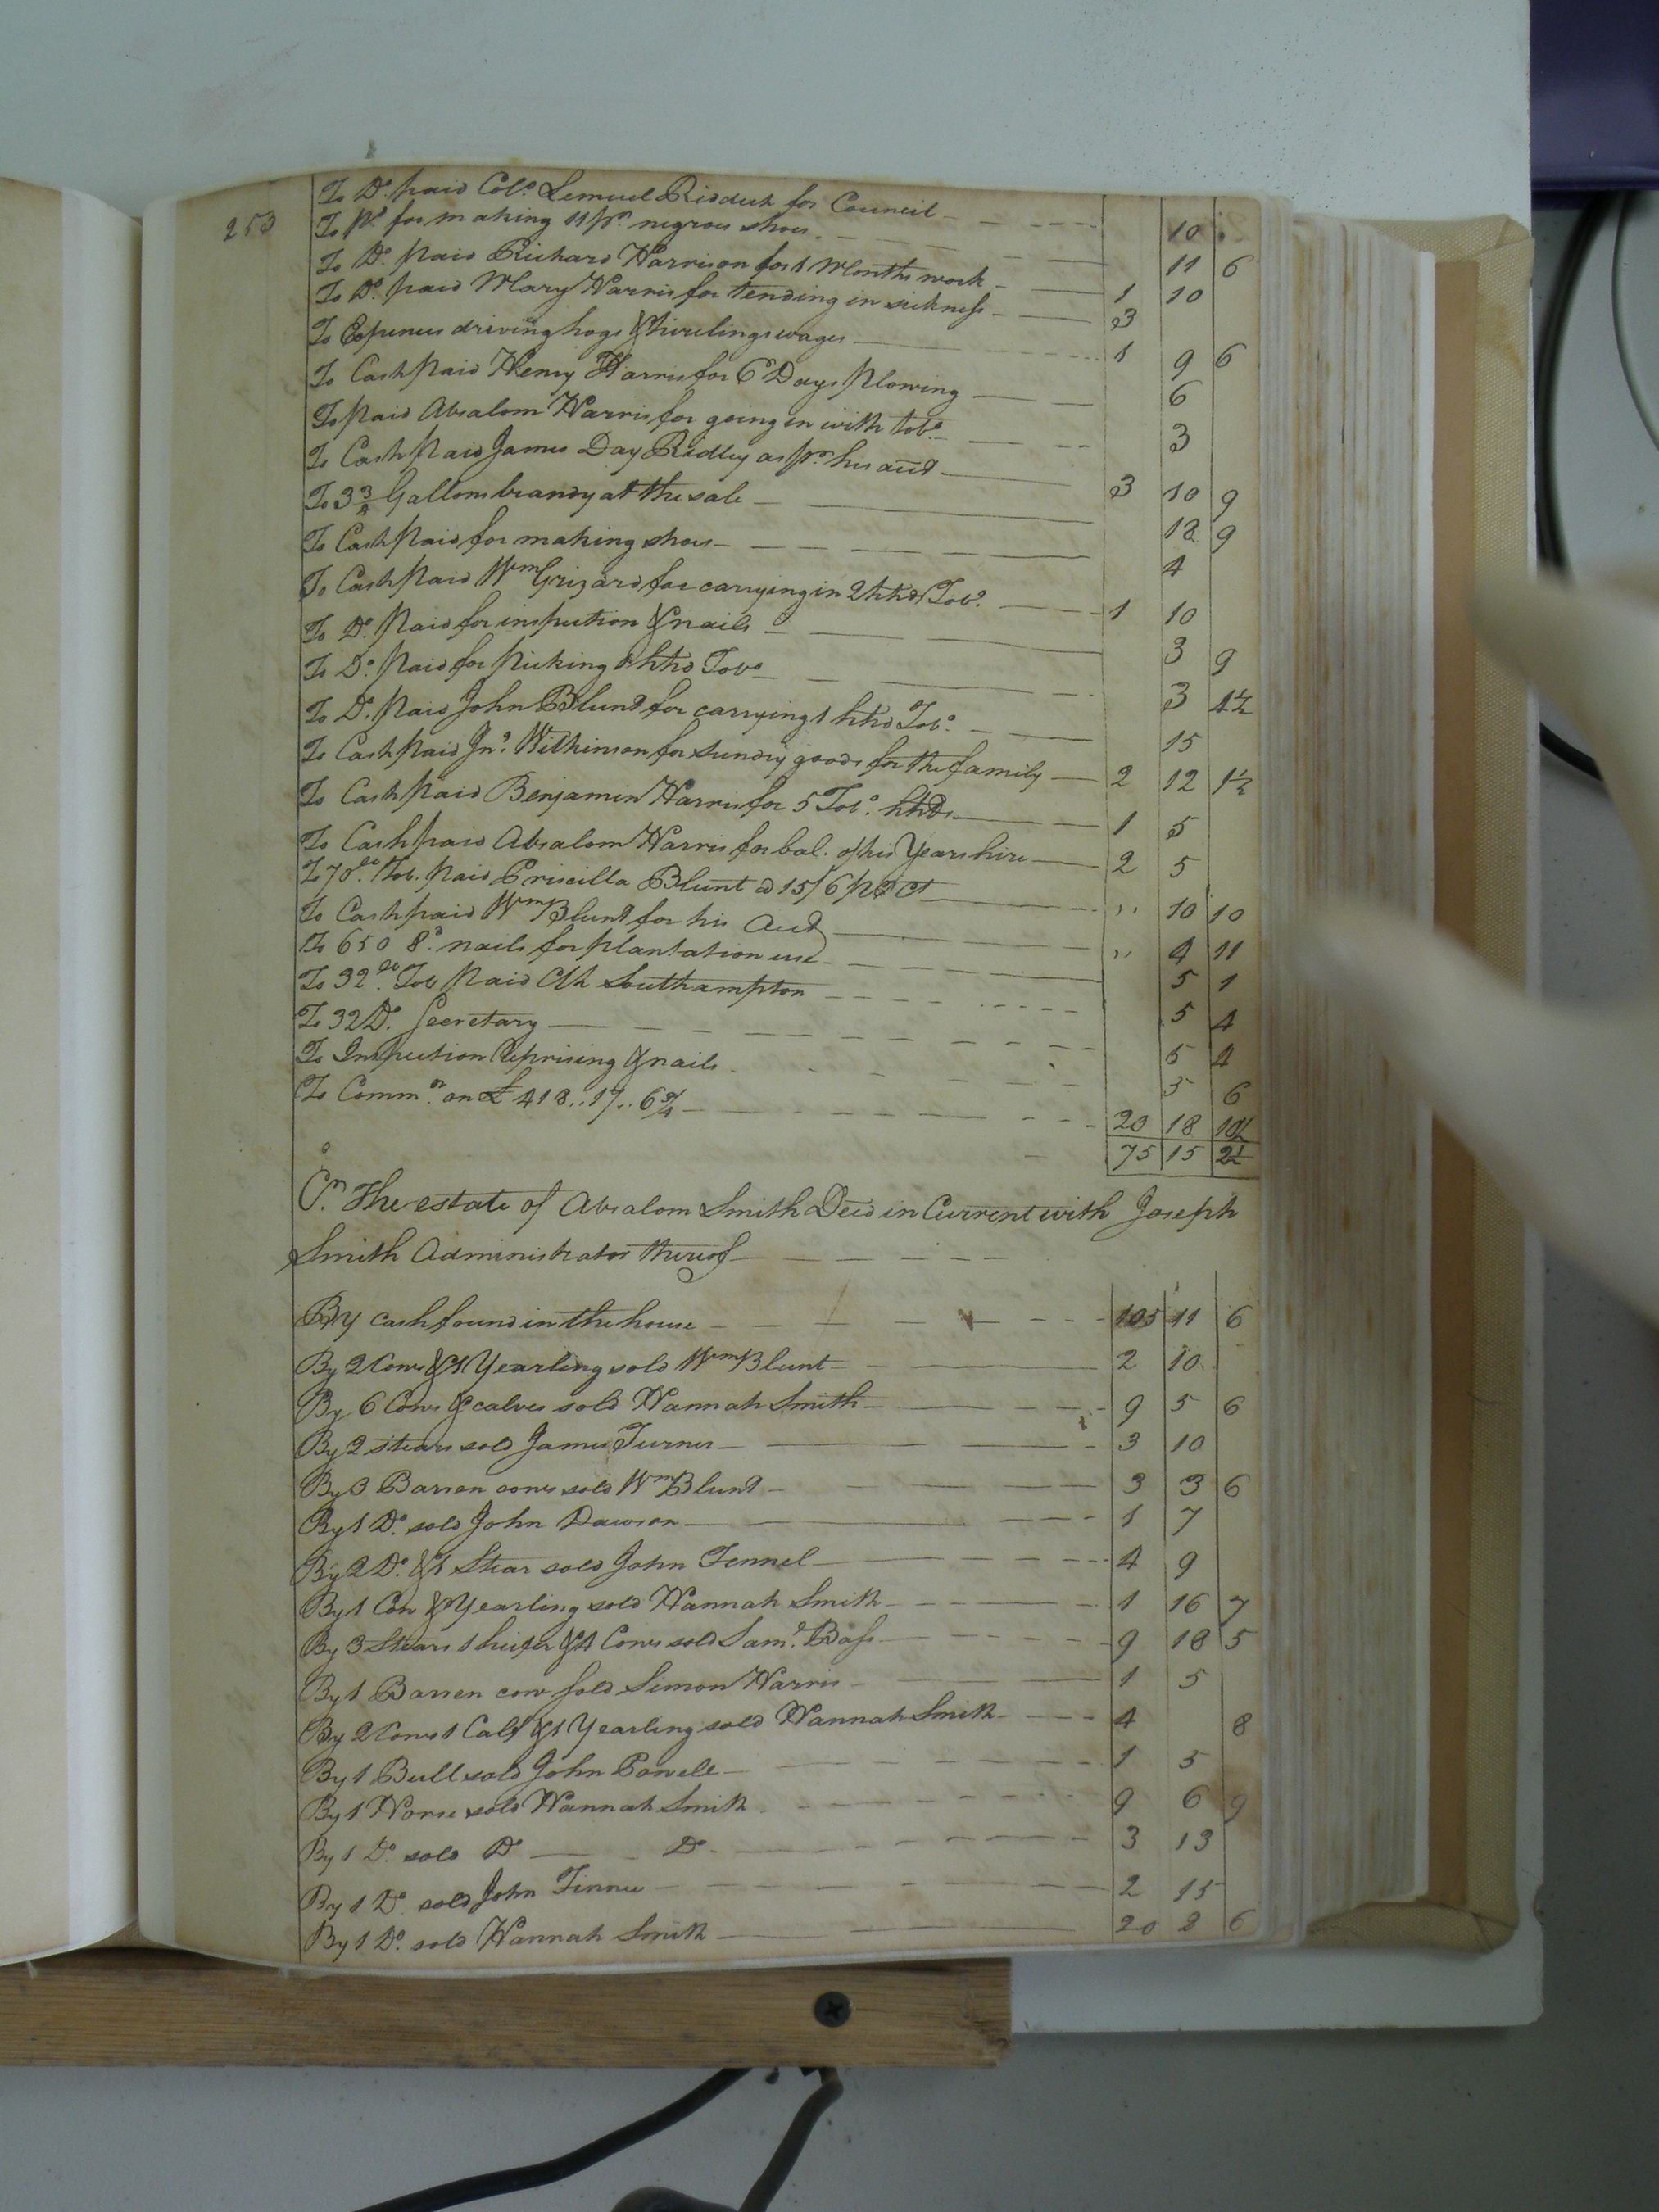 253
To Do. paid Colo. Lemuel Riddick for Council 10
To pd. for making 11 pr. negroes shoes 11 6
To Do. paid Richard Harrison for 1 Months work 1 10
To Do. paid Mary Harris for tending in sickness 3
To Expences driving hogs & hirelings wages 1 9 6
To Cash paid Henry Harris for 6 Days plowing 6
To paid Absalom Harris for going in with tobo. 3
To Cash paid James Day Ridley as pr. his acct 3 10 9
To 3 3/4 Gallons brandy at the sale 18 9
To Cash paid for making shoes 4
To Cash paid Wm Grizard for carrying in 2 hhds Tobo. 1 10
To Do. paid for inspection & nails 3 9
To Do. paid for picking hhd Tobo 3 1½
To Do. paid John Blunt for carrying 1 hhd Tobo. 15
To Cash paid Jno. Wilkinson for sundry goods for the family 2 12 1½
To Cash paid Benjamin Harris for 5 Tobo. hhds 1 5
To Cash paid Absalom Harris for bal. of his Years hire 2 5
To 70 lb. Tob. paid Priscilla Blunt @ 15/6 pr Ct " 10 10
To Cash paid Wm Blunt for his Acct " 4 11
To 650 8d nails for plantation use 5 1
To 32 lb. Tob paid Clk Southampton 5 4
To 32 Do. Secretary 5 4
To Inspection Uprising & nails 5 6
To Commn. on £ 418..17..6¾ 20 18 10½
75 15 2½
Cr. The estate of Absalom Smith Decd in Current with Joseph
Smith Administrator thereof
By cash found in the house 105 11 6
By 2 Cows & 1 Yearling sold Wm Blunt 2 10
By 6 Cows & calves sold Hannah Smith 9 5 6
By 2 stears sold James Turner 3 10
By 3 Barren cows sold Wm Blunt 3 3 6
By 1 Do. sold John Dawson 1 7
By 2 Do. & 1 Stear sold John Fennel 4 9
By 1 Cow & Yearling sold Hannah Smith 1 16 7
By 3 Stears 1 heifer & 4 Cows sold Saml. Bass 9 18 5
By 1 Barren cow sold Simon Harris 1 5
By 2 Cows 1 Calf & 1 Yearling sold Hannah Smith 4 8
By 1 Bull sold John Powell 1 5
By 1 Horse sold Hannah Smith 9 6 9
By 1 Do. sold Do Do. 3 13
By 1 Do. sold John Finnie 2 15
By 1 Do. sold Hannah Smith 20 2 6